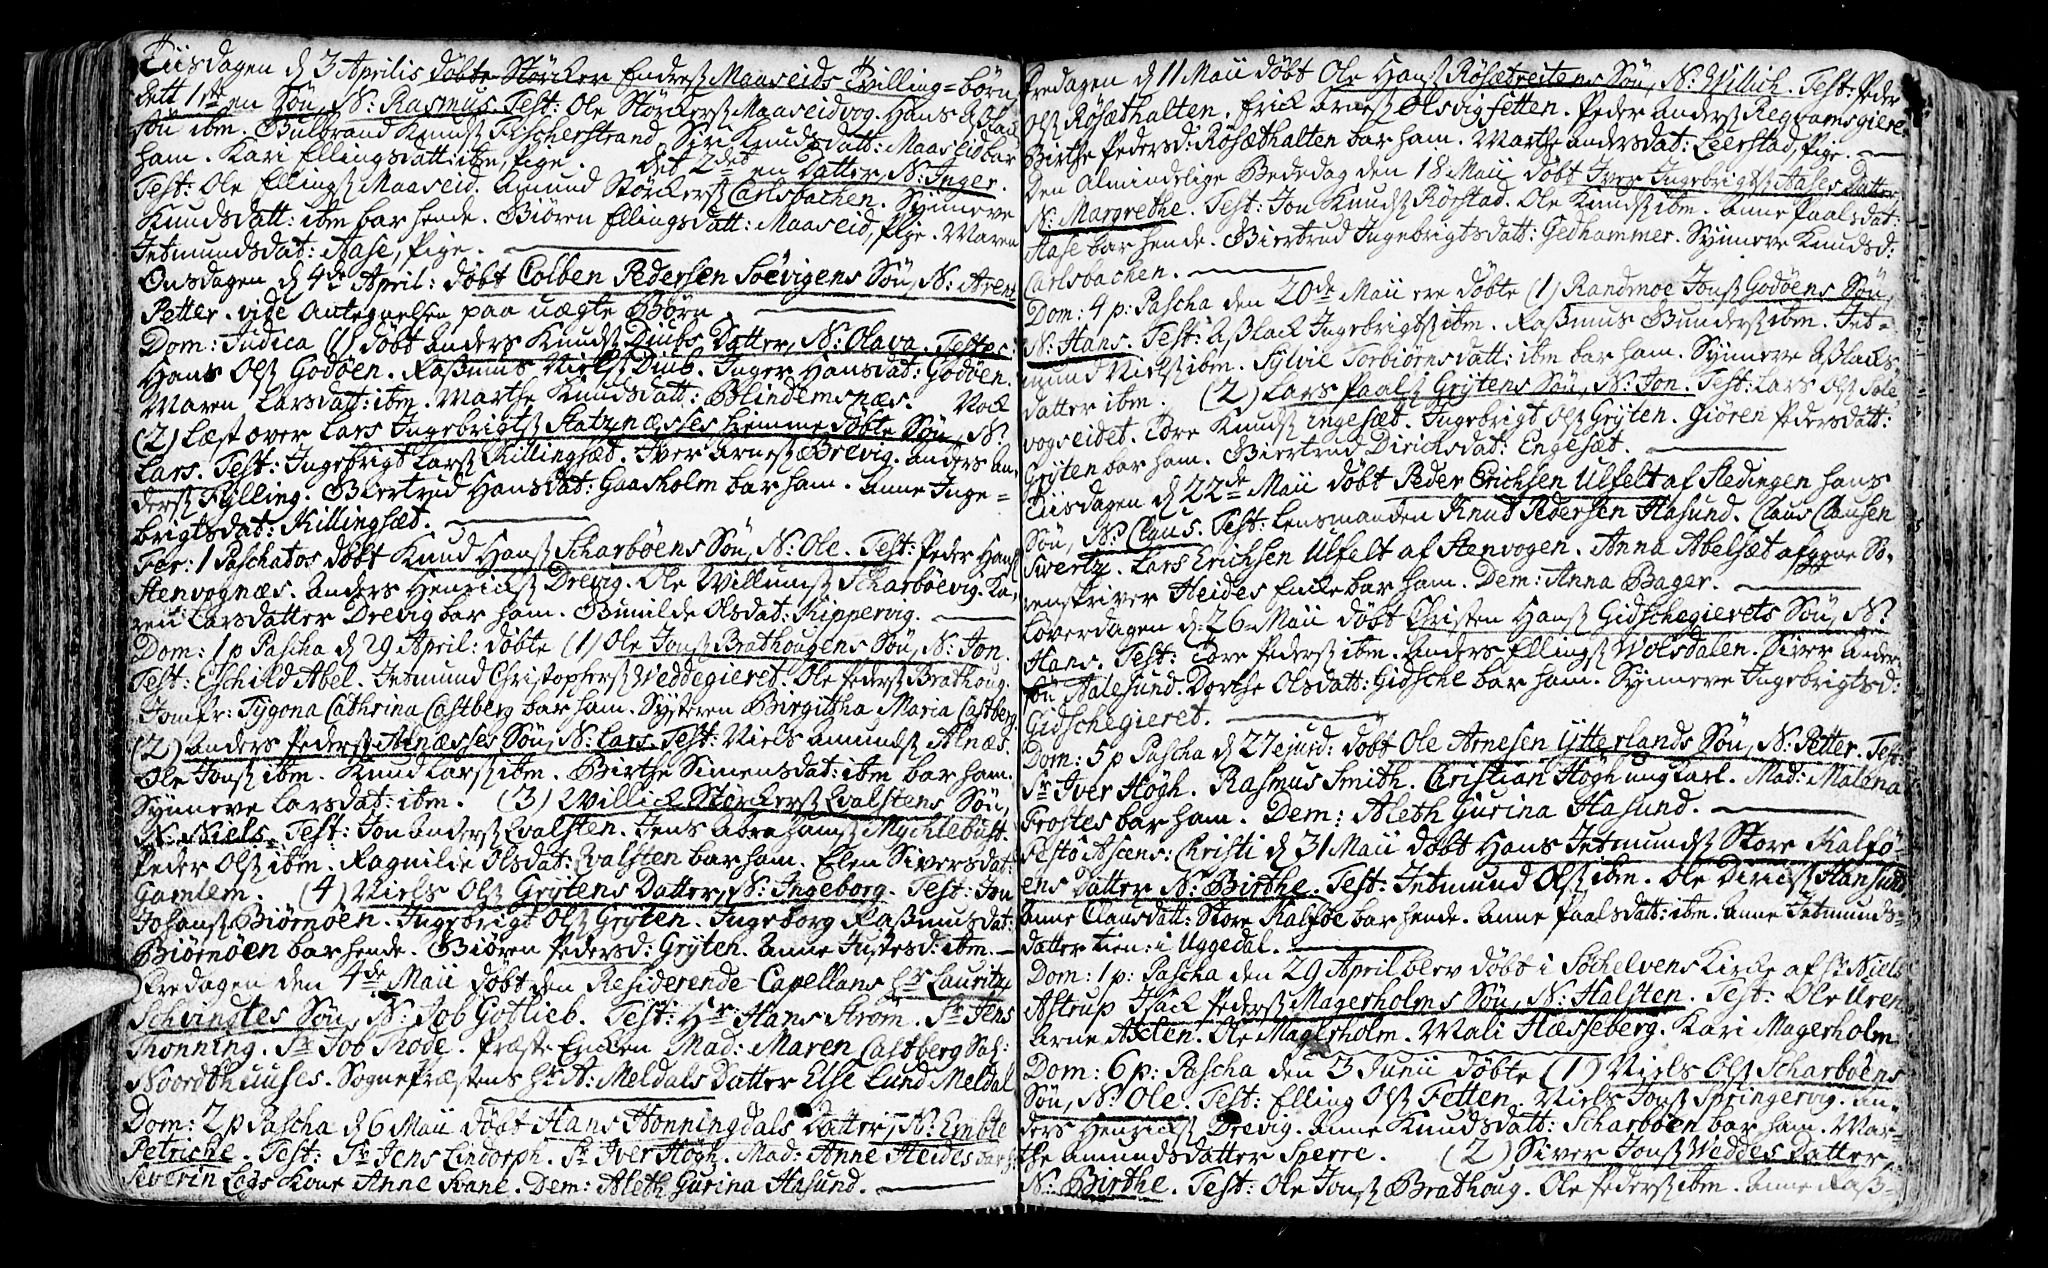 Tiisdagen d 3 Aprilis døbte Størcker Enders Maaseids Tvilling-børn
dett 1ste en Søn, N: Rasmus. Test: Ole Størckers Maaseidvog. Hans
søn ibm. Gulbrand Knuds Fischerstrand. Siri Knudsdatt: Maaseid bar
ham. Kari Ellingsdatt: ibm, Pige. det 2det en Datter, N: Inger.
Test: Ole Ellings Maaseid. Amund Størckers Carlsbachen. Synneve
Knudsdatt: ibm bar hende. Giøren Ellingsdatt: Maaseid, Pige. Maren
Jetmundsdat: Aase, Pige.
Onsdagen d 4de April: døbt Colben Pedersen Soevigens Søn, N: Arent
Petter. vide Antegnelsen paa uægte Børn.
Dom: Judica (1) døbt Anders Knuds Diubs Datter, N: Olava. Testes:
Hans Ols Godøen. Rasmus Niels Diub. Inger Hansdat: Godøen.
Maren Larsdatt: ibm. Marthe Knudsdatt: Blindemsnæs. Noch
(2) Læst over Lars Ingebrigts Slatznæsses hiemmedøbte Søn, N:
Lars. Test: Ingebrigt Lars Killingsæt. Iver Arnes Brevig. Anders An-
ders Fylling. Giertrud Hansdat: Gaasholm bar ham. Anne Inge-
brigtsdat: Killingsæt.
Fer: 1 Paschatos døbt Knud Hans Scharbøens Søn, N: Ole. Test: Peder Hans
Stenvognæs. Anders Henrichs Drevig. Ole Willums Scharbøevig. Ka-
ren Larsdatter Drevig bar ham. Gunilde Olsdat: Kippervig.
Dom: 1 p Pascha d 29 April: døbte (1) Ole Jons Brathougens Søn, N: Jon.
Test: Eschild Abel. Jetmund Christophers Weddegieret. Ole Peders Brathoug.
Jomfr: Tygona Cathrina Castberg bar ham. Systeren Birgitha Maria Castberg.
(2) Anders Peders Alnæsses Søn, N: Lars. Test: Niels Amunds Alnæs.
Ole Jons ibm. Knud Lars ibm. Birthe Simensdat: ibm bar ham.
Synneve Larsdat: ibm. (3) Willick Størckers Evalstens Søn,
N: Niels. Test: Jon Anders Evalsten. Jens Abrahams Mychlebust.
Peder Ols ibm. Ragnilde Olsdat: Evalsten bar ham. Elen Siversdat:
Gamlem. (4) Niels Ols Grytens Datter, N: Ingeborg. Test: Jon
Johans Biørnøen. Ingebrigt Ols Gryten. Ingeborg Rasmusdat:
Biørnøen bar hende. Giøren Pedersd: Gryten. Anne Justesd: ibm.
Fredagen den 4de Maii døbt den Residerende Capellans Hr Lauritz
Schvindtes Søn, N: Job Gotlieb. Test: Hr Hans Strøm. Sr Jens
Thonning. Sr Job Thode. Præste Encken Mad: Maren Castberg Sal:
Noordthuuses. Sognepræstens Hr A: Meldals Datter Else Lund Meldal
Dom: 2 p Pascha d 6 Maii døbt Hans Honningdals Datter, N: Embte
Petriche. Test: Sr Jens Lindorph. Sr Iver Høgh. Mad: Anne Heides bar
Severin Løgs Kone Anne Kane. Dem: Aleth Gurina Hasund.
Fredagen d 11 Maii døbt Ole Hans Røsætreitens Søn, N: Willich. Test: Peder
Ols Røsæthalten. Erick Arnes Olsvigfetten. Peder Anders Regvamsgiere
Birthe Pedersd: Røsæthalten bar ham. Marthe Andersdat: Leerstad, Pige.
Den Almindelige Bededag den 18 Maii døbt Iver Ingebrigts Aases Datter
N: Margrethe. Test: Jon Knuds Rørstad. Ole Knuds ibm. Anne Paalsdat:
Aase bar hende. Giertrud Ingebrigtsdatt: Gedhammer. Synneve Knudsd:
Carlsbachen.
Dom: 4 p: Pascha den 20de Maii ere døbte (1) Randmoe Jons Godøens Søn,
N: Hans. Test: Aslack Ingebrigts ibm. Rasmus Gunders ibm. Jet-
mund Niels ibm. Sylvie Torbiørnsdatt: ibm bar ham. Synneve Aslacks-
datter ibm. (2) Lars Paals Grytens Søn, N: Jon. Test: Lars Ols Sole
vogseidet. Tore Knuds Engesæt. Ingebrigt Ols Gryten. Giøren Pedersdatt:
Gryten bar ham. Giertrud Dirichsdat: Engesæt.
Tiisdagen d 22de Maii døbt Peder Erichsen Ulfelt af Stedingen hans
Søn, N: Claus. Test: Lensmanden Knud Pedersen Hasund. Claus Clausen
Swertz. Lars Erichsen Ulfelt af Stenvogen. Anna Abelsæt afggne So-
renskriver Heides Encke bar ham. Dem: Anna Bager.
Løverdagen d: 26 Maii døbt Christen Hans Gidschegierets Søn, N:
Hans. Test: Tore Peders ibm. Anders Ellings Wolsdalen. Siver Ander-
søn Aalesund. Dorthe Olsdatt: Gidsche bar ham. Synneve Ingebrigtsd:
Gidschegieret.
Dom: 5 p Pascha d 27 ejusd: døbt Ole Arnesen Ytterlands Søn, N: Petter. Test:
Sr Iver Høgh. Rasmus Smith. Christian Høgh ung Karl. Mad: Malena
Frostes bar ham. Dem: Aleth Gurina Hasund.
Festo Ascens: Christi d 31 Maii døbt Hans Jetmunds Store Kalfø-
ens Datter N: Birthe. Test: Jetmund Ols ibm. Ole Dirics Hansund
Anne Clausdatt: Store Kalføe bar hende. Anne Paalsdatt: ibm. Anne Jetmunds-
datter tien: i Uggedal.
Dom: 1 p: Pascha den 29 April blev døbt i Søchelvens Kirke af Hr Niels
Astrup Isack Peders Magerholms Søn, N: Halsten. Test: Ole Uren
Arne Axten. Ole Magerholm. Mali Hæsseberg. Kari Magerholm
Dom: 6 p: Pascha den 3 Junii døbte (1) Niels Ols Scharbøens
Søn, N: Ole. Test: Elling Ols Fetten. Niels Jons Springervig. An-
ders Henrichs Drevig. Anne Knudsdatt: Scharbøen bar ham. Mar-
the Amundsdatter Sperre. (2) Siver Jons Weddes Datter,
N: Birthe. Test: Ole Jons Brathoug. Ole Peders ibm. Anne Ras-